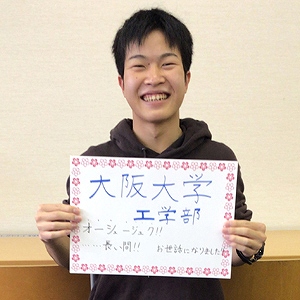 大阪大学
工学部
オージュージュク!!
……長い間!! お世話になりました